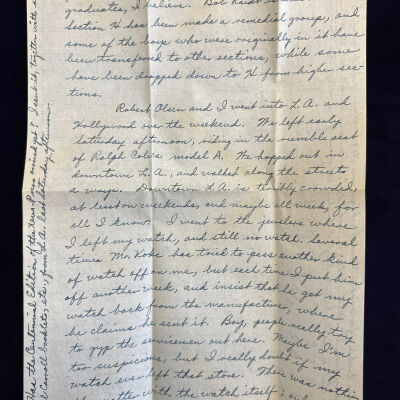 graduates, I believe. Bob
Section H has been made a remedial group, and
some of the boys who were originally in it have
been transferred to other sections, while some
have been dragged down to H from higher sec-
tions.
Robert Olsen and I went into L.A. and
Hollywood over the weekend. We left early
Saturday afternoon, riding in the rumble seat
of Ralph Cole's model A. We hopped out in
downtown L.A., and walked along the streets
a ways. Downtown L.A. is terribly crowded,
at least on weekends, and maybe all week, for
all I know. I went to the jewelers where
I left my watch, and still no watch. Several
times Mr. has tried to pass another kind
of watch off on me, but each time I put him
off another week, and insist that he get my
watch back from the manufacturer, where
he claims he sent it. Boy, people really try
to gyp the servicemen out here. Maybe I'm
too suspicious, but I really doubt if my
watch ever left that store. There was nothing
matter with the watch itself;
Has the Centennial Edition of the arrived yet? I sent it, together with
booklets, etc., from L.A. last Saturday afternoon.